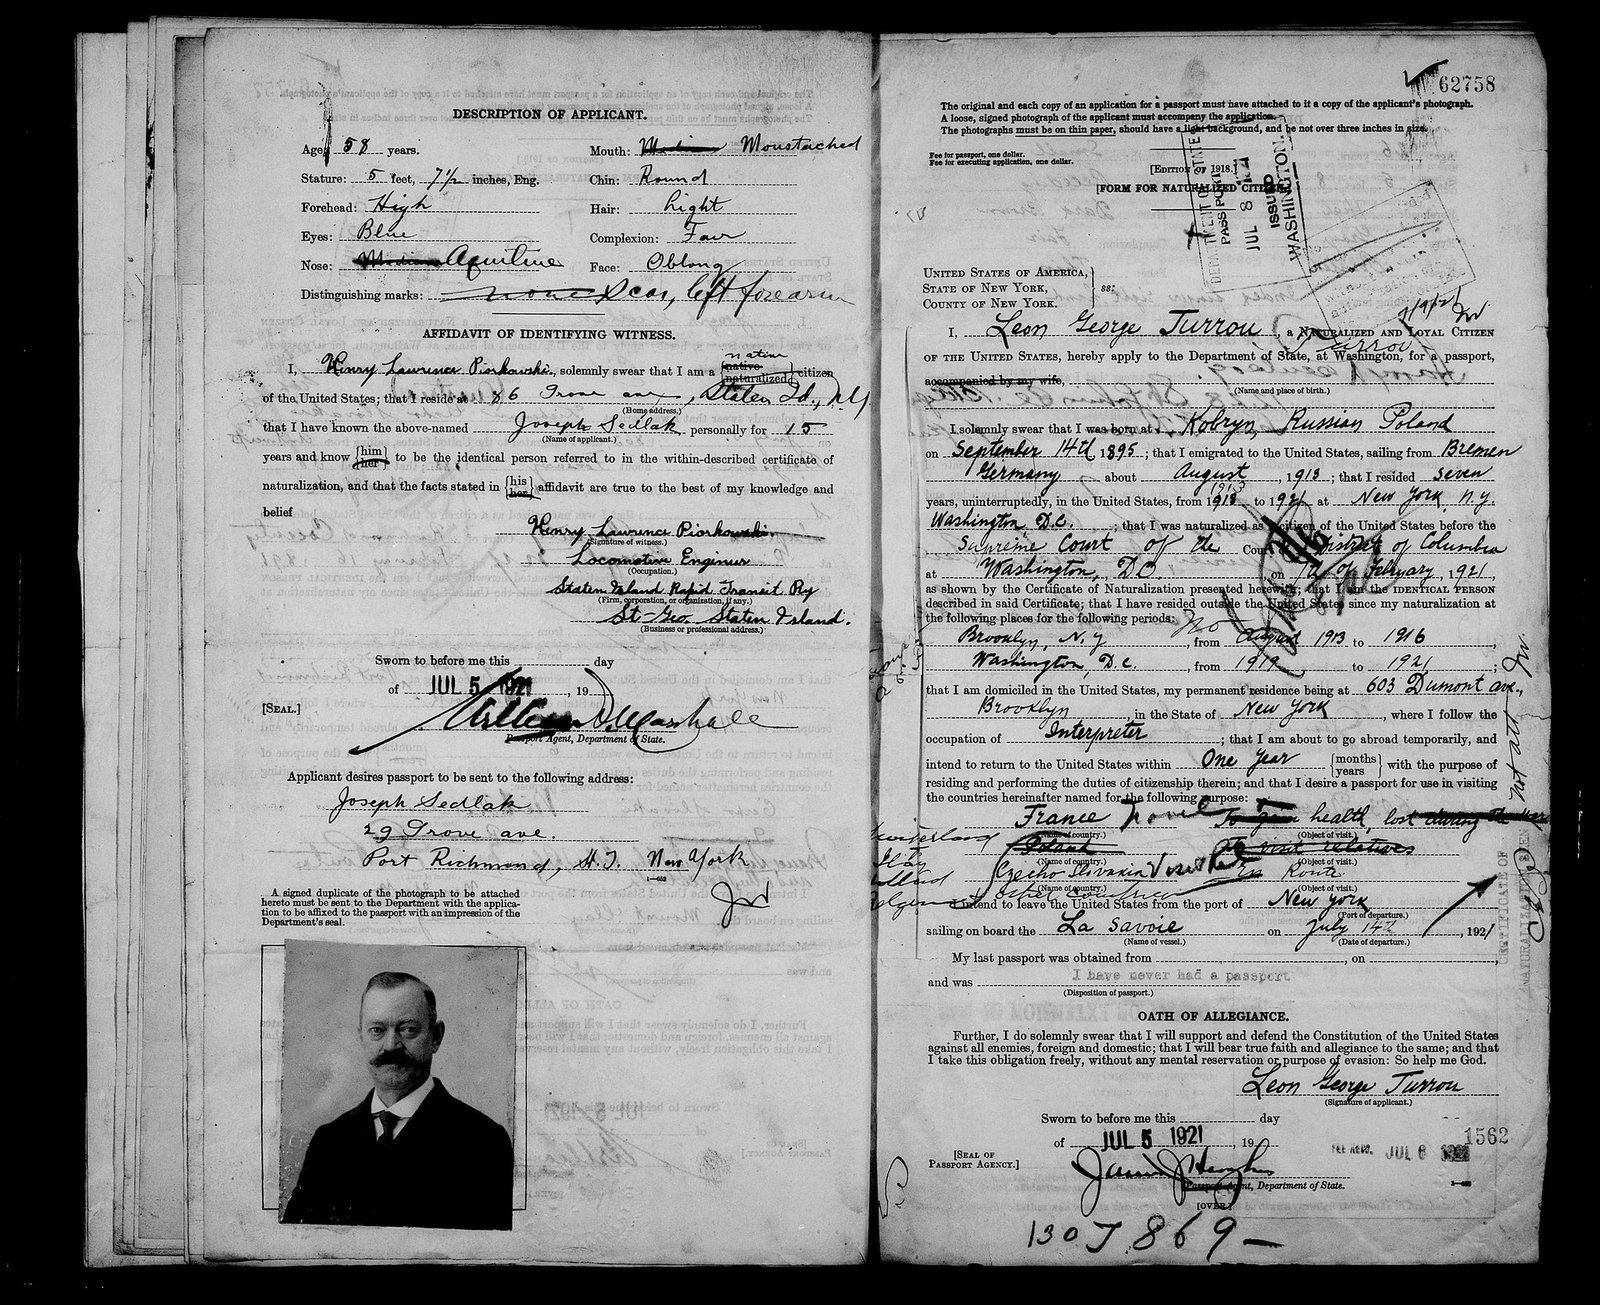 DESCRIPTION OF APPLICANT.
Age, 58 years.
Mouth: Moustached
Stature: 5 feet, 7½ inches, Eng.
Chin: Round
Forehead: High
Hair: Light
Eyes: Blue
Complexion: Fair
Nose: Medium Aquiline
Face: Oblong
Distinguishing marks: none Scar, left forearm
AFFIDAVIT OF IDENTIFYING WITNESS.
native
I, Henry Lawrence Piorkowski, solemnly swear that I am a {native naturalized} citizen
of the United States; that I reside at 86 Grove ave, Staten Id., N.Y.
(Home address.)
that I have known the above-named Joseph Sedlak personally for 15
(Name of applicant.)
years and know {him her} to be the identical person referred to in the within-described certificate of
naturalization, and that the facts stated in {his her} affidavit are true to the best of my knowledge and
belief
Henry Lawrence Piorkowski.
(Signature of witness.)
Locomotive Engineer
(Occupation.)
Staten Island Rapid Transit Ry
(Firm, corporation, or organization, if any.)
St. Geo. Staten Island.
(Business or professional address.)
Sworn to before me this day
of JUL 5 1921, 19
[SEAL.]
Passport Agent, Department of State.
Applicant desires passport to be sent to the following address:
Joseph Sedlak
29 Grove ave.
Port Richmond, S.I. New York
A signed duplicate of the photograph to be attached
hereto must be sent to the Department with the applica-
tion to be affixed to the passport with an impression of the
Department's seal.
62758
The original and each copy of an application for a passport must have attached to it a copy of the applicant's photograph.
A loose, signed photograph of the applicant must accompany the application.
The photographs must be on thin paper, should have a light background, and be not over three inches in size.
Fee for passport, one dollar.
Fee for executing application, one dollar.
[EDITION OF 1918.]
[FORM FOR NATURALIZED CITIZEN.]
DEPARTMENT OF STATE
PASSPORT
JUL 8 1921
ISSUED
WASHINGTON
UNITED STATES OF AMERICA,
STATE OF NEW YORK,
COUNTY OF NEW YORK.
ss:
I, Leon George Turrou, a NATURALIZED AND LOYAL CITIZEN
Turrou
OF THE UNITED STATES, hereby apply to the Department of State, at Washington, for a passport,
accompanied by my wife,
(Name and place of birth.)
I solemnly swear that I was born at Kobryn, Russian Poland
on September 14th 1895; that I emigrated to the United States, sailing from Bremen
Germany about August, 1913; that I resided seven
years, uninterruptedly, in the United States, from 1913 to 1921 at New York, N.Y.
Washington D.C.; that I was naturalized as a citizen of the United States before the
Supreme Court of the Court District of Columbia
at Washington, D.C. on of February, 1921,
as shown by the Certificate of Naturalization presented herewith; that I am the IDENTICAL PERSON
described in said Certificate; that I have resided outside the United States since my naturalization at
the following places for the following periods: no
Brooklyn, N.Y., from August 1913 to 1916
Washington, D.C. from 1919 to 1921;
that I am domiciled in the United States, my permanent residence being at 603 Dumont ave.,
Brooklyn in the State of New York, where I follow the
occupation of Interpreter; that I am about to go abroad temporarily, and
intend to return to the United States within One Year {months years} with the purpose of
residing and performing the duties of citizenship therein; and that I desire a passport for use in visiting
the countries hereinafter named for the following purpose:
France Travel To gain health, lost during the War
(Name of country.) (Object of visit.)
Poland To visit relatives
(Name of country.) (Object of visit.)
Czecho Slovakia En Route
(Name of country.) (Object of visit.)
I intend to leave the United States from the port of New York
(Port of departure.)
sailing on board the La Savoie on July 14th, 1921
(Name of vessel.) (Date of departure.)
My last passport was obtained from , on ,
and was I have never had a passport
(Disposition of passport.)
OATH OF ALLEGIANCE.
Further, I do solemnly swear that I will support and defend the Constitution of the United States
against all enemies, foreign and domestic; that I will bear true faith and allegiance to the same; and that
I take this obligation freely, without any mental reservation or purpose of evasion: So help me God.
Leon George Turrou
(Signature of applicant.)
Sworn to before me this day
of JUL 5 1921, 19
[SEAL OF
PASSPORT AGENCY.]
Passport Agent, Department of State.
[OVER]
1562
JUL 6
130 J 869 —